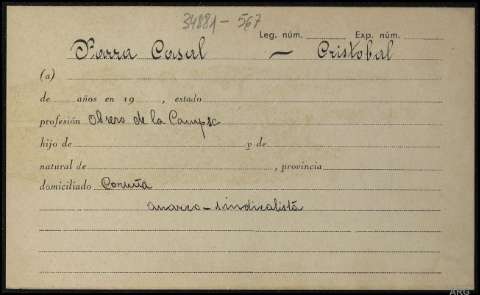 34881-567
Leg. núm. Exp. núm.
Parra Casal — Cristobal
(a)
de años en 19 , estado
profesión Obrero de la Campsa
hijo de y de
natural de , provincia
domiciliado Coruña
anarco-sindicalista
ARG